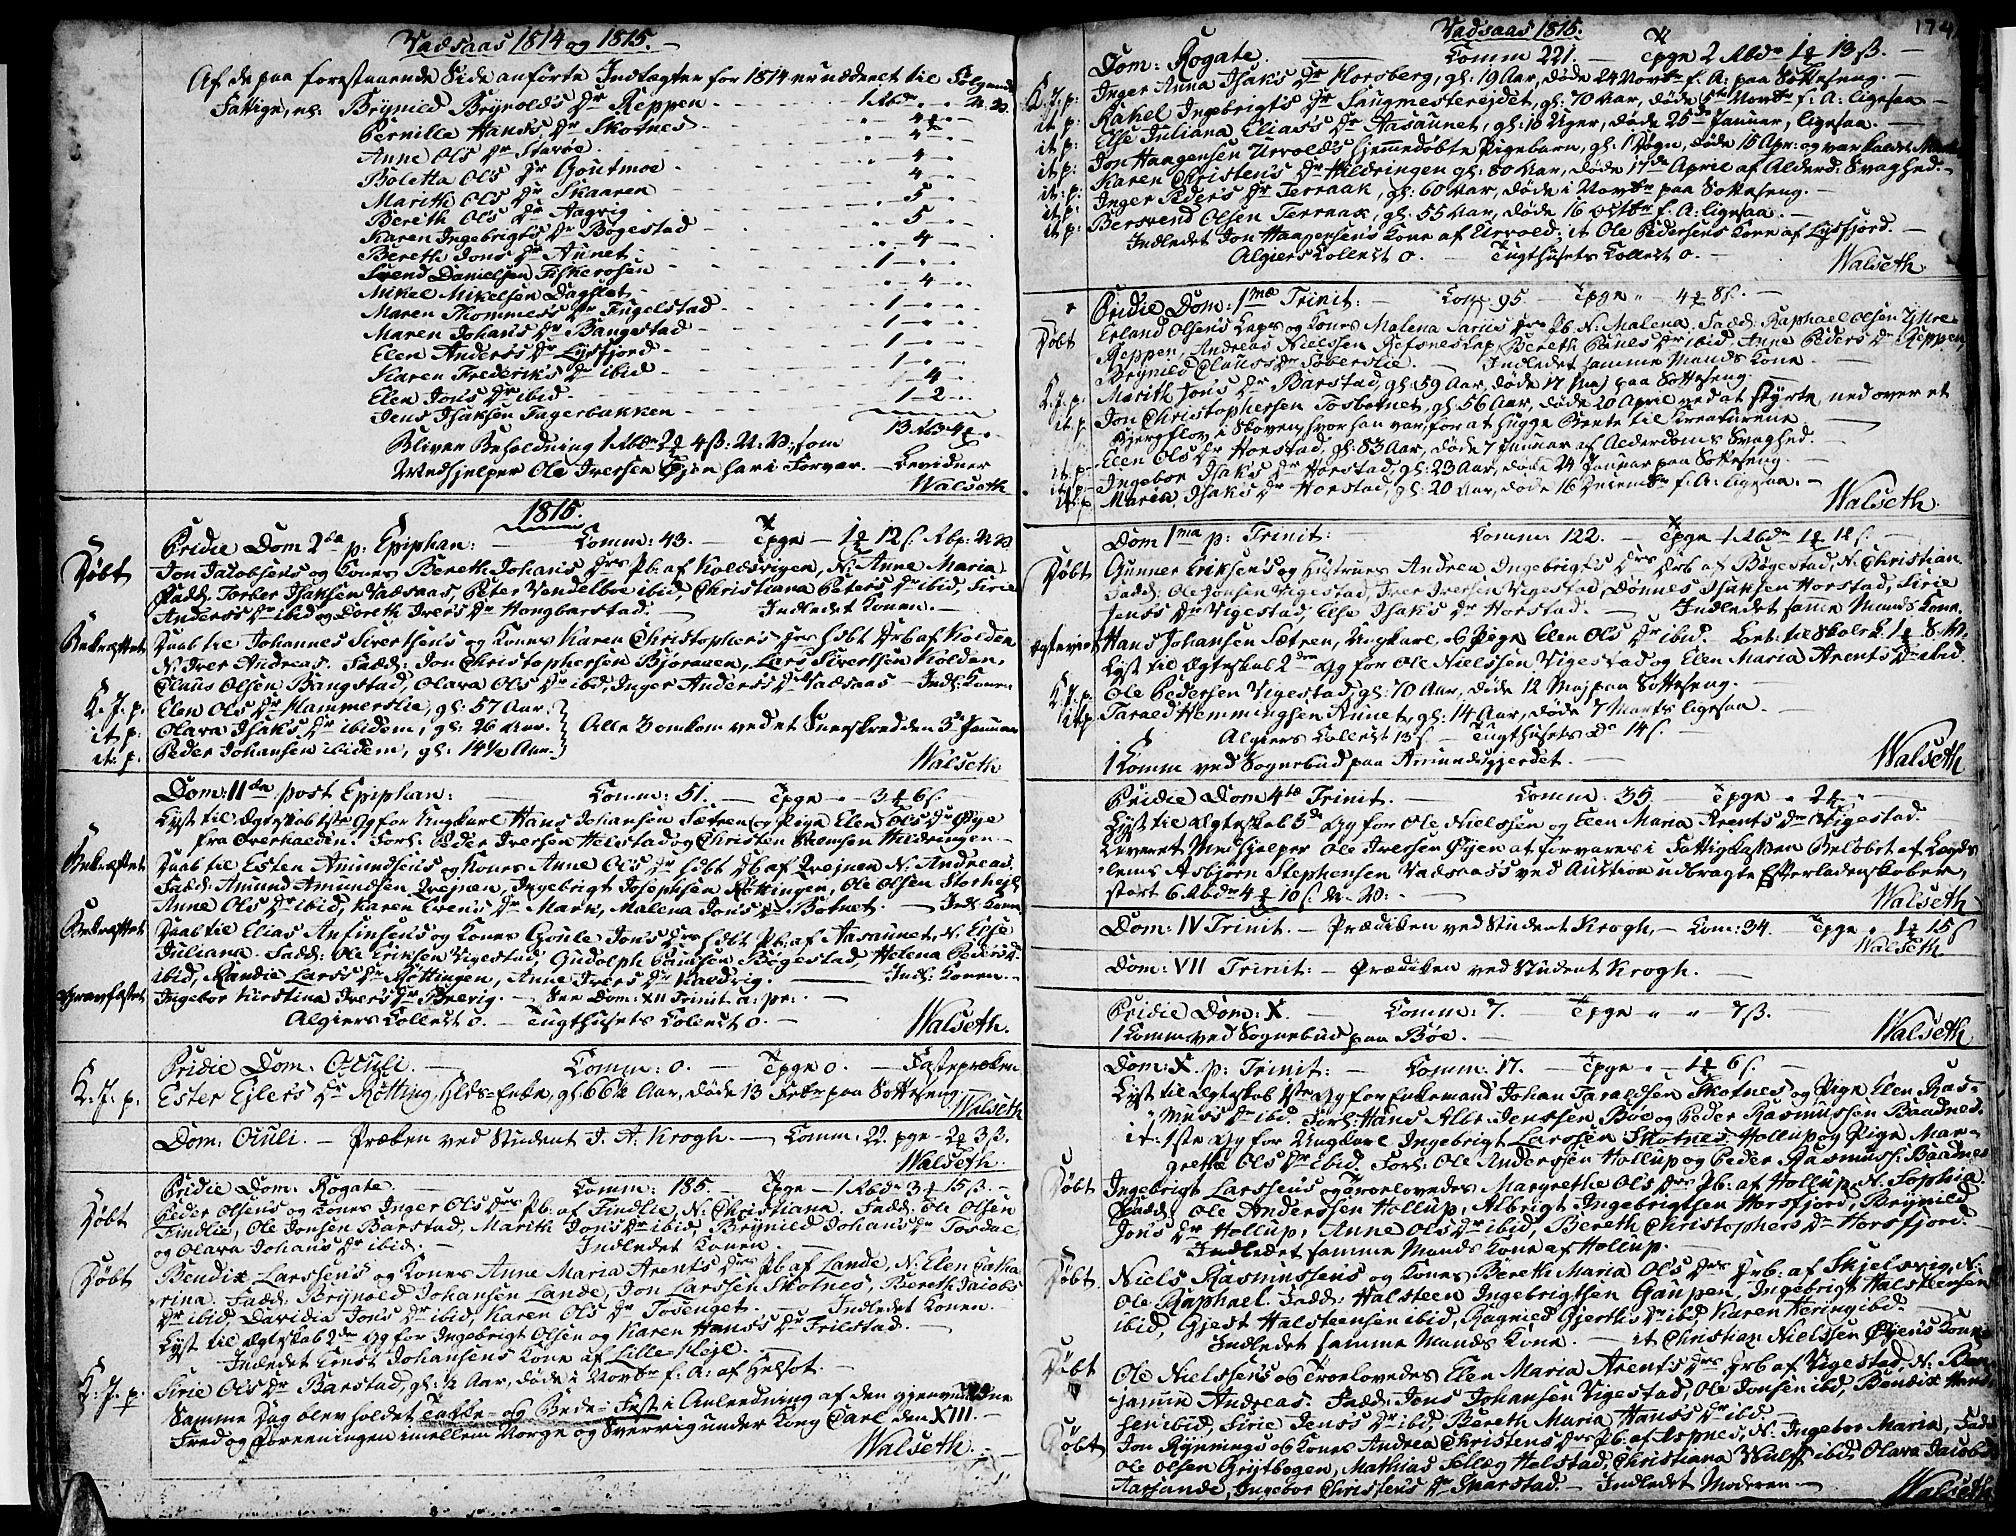 Vadsaas 1814 og 1815.
Af de paa forestaaende Side anførte Indtægter for 1814 er uddeelt til Følgende
Fattige, nl: Brynild Brynolds Dr Reppen - 1 Rbdr " " N.V.
Pernilla Hans's Dr Skotnes - " - 4 -
Anne Ols Dr Starøe - " - 4 -
Boletta Ols Dr Goutmoe - 4 -
Marith Ols Dr Skaaren - 4 -
Bereth Ols Dr Aagvig - 5 -
Karen Ingebrigts Dr Bogestad - 5 -
Bereth Jons Dr Aunet - 4 -
Svend Danielsen Fiskerosen - 1 -
Mikel Mikelsen Dagslet - 4 -
Maren Thommess Dr Fugelstad - 1 -
Maren Johans Dr Bangstad - 1 -
Elen Anders's Dr Lysfjord - 1 -
Karen Frederiks Dr ibid - 1 -
Elen Jons Dr ibid - 4 -
Jens Isaksen Fagerbakken - 1 - 2 -
Bliver Beholdning 1 Rbdr 2 4 ß: N: V:, som
Medhjelper Ole Iversen Øjen har i Forvar. - Bevidner
Walseth
1815.
Pridie Dom 2da p: Epiphan: - Comm: 43. - Tpge - 1 12 ß. Rbp: N V
Døbt Jon Jacobsens og Kones Bereth Johans Drs Pb. af Kolsvigen, N: Anne Maria.
Fadd: Torber Isaksen Vadsaas, Peter Vendelboe ibid, Christiana Peters Dr ibid, Sirie
Anders's Dr ibid og Dorth Ivers Dr Hongbarstad. - Indledet Konen. -
Bekræftet Daab til Johannes Sivertsens og Kones Karen Christophers Drs hdbt Drb af Kolden
N: Iver Andreas. Fadd: Jon Christophersen Bjøraaen, Lars Sivertsen Kolden,
Claus Olsen Bangstad, Olara Ols Dr ibd, Inger Anders's Dr Vadsaas - Indl: Konen
K. J. p: Elen Ols Dr Hammerslie, gl: 57 Aar.
it: p: Olava Isaks Dr ibidem, gl: 26 Aar. } Alle 3 omkom ved et Sneeskred den 3de Januar
it: p: Peder Johansen ibidem, gl: 14½ Aar.
Walseth
Dom: II da post Epiphan: - Comm: 51. - Tpge " - 3 6 ß.
Lyst til Ægteskab 1ste Gg for Ungkarl Hans Johansen Sætren og Pige Elen Ols Dr Øye
fra Overhalden. Forl: Peder Iversen Helstad og Christen Steensen Hildringen. -
Bekræftet Daab til Esten Amundsens og Kones Anne Ols Dr hdbt Db af Qvejnen N: Andreas
Fadd: Amund Amundsen Qvejnen, Ingebrigt Josephsen Røttingen, Ole Olsen Storhejl
Anne Ols Dr ibid, Karen Evens Dr Mark, Malena Jons Dr Botnet. - Indl: Konen
Bekræftet Daab til Elias Anfinsens og Kones Goule Jons Drs hdbt Pb: af Aasaunet, N: Else
Juliana. Fadd: Ole Eriksen Vigestad, Gudolph Bøgestad, Helena Peders Dr
ibid, Randie Lars's Dr Røttingen, Anne Ivers Dr Kaldvig. - Indl: Konen. -
Gravfæstet Ingebor Kirstina Ivers Dr Brevig. - See Dom: XII Trinit a: pr: -
Algiers Collect 0. - Tugthusets Collect 0. - Walseth.
Pridie Dom. Oculi. - Comm: 0. - Tpge 0. - Fastepræken
K. J. p: Ester Ejlers Dr Røtting, Enke, gl: 66½ Aar, døde 13 Febr paa Sotteseng. Walseth
Dom: Oculi. - Præken ved Student J. A. Krogh. - Comm: 22. pge - 2 3 ß.
Walseth.
Pridie Dom: Rogate. - Comm: 185 - Tpge - 1 Rbdr 3 15 ß. -
Døbt Peder Olsens og Kones Inger Ols Drs Pb. af Findlie, N: Christiana. Fadd: Ole Olsen
Findlie, Ole Jonsen Barstad, Marith Jons Dr ibid, Brynild Johans Dr Tosdal
og Olara Johans Dr ibid. - Indledet Konen -
Døbt Bendix Larssens og Kones Anne Maria Arents Drs Pb af Lande, N: Elen Catha
rina. Fadd: Brynold Johansen Lande, Jon Larssen Skotnes, Bereth Jacobs
Dr ibid, Davidia Jons Dr ibid, Karen Ols Dr Tosenget. - Indledet Konen.
Lyst til Ægteskab 2den Gg for Ingebrigt Olsen og Karen Hans's Dr Frilstad. -
Indledet Ernst Johansens Kone af Lille Hejl. -
K. J. p: Sirie Ols Dr Barstad, gl: ½ Aar, døde i Novbr f: A: af Helsot. -
Samme Dag blev holdet Takke- og Bede-Fest i Anledning af den gjenvundne
Fred og Foreeningen imellem Norge og Sverrig under Kong Carl den XIII. -
Walseth.
Vadsaas 1815. 174
Dom: Rogate. Comm 221. - Tpge 2 Rbdr 1 13 ß. -
K. J. p: Inger Anna Isaks Dr Horsberg, gl: 19 Aar, døde 24 Novbr f: A: paa Sotteseng. -
it: p: Rahel Ingebrigts Dr Saugmesterejdet, gl: 70 Aar, døde Novbr f: A: ligesaa -
it: p: Else Juliana Elias's Dr Aasaunet, gl: 18 Uger, døde 25de Januar, ligesaa. -
it: p: Jon Haagensen Urvolds hjemmedøbte Pigebarn, gl: 1 Døgn, døde 15 Apr. og var kaldet
it: p: Karen Christens Dr Hildringen gl: 80 Aar, døde 17de April af Alderd: Svaghed. -
it: p: Inger Peders Dr Terraak, gl: 60 Aar, døde i Novbr paa Sotteseng. -
it: p: Bersvend Olsen Terraak, gl: 55 Aar, døde 16 Octbr f: A: ligesaa. -
Indledet Jon Haagensens Kone af Urvold; it Ole Pedersens Kone af Lysfjord. -
Algiers Collect 0. - Tugthusets Collect 0. - Walseth
Pridie Dom: 1mæ Trinit: - Com: 95. Tpge " - 4 8 ß. -
Døbt Erland Olsens Laps og Kones Malena Larses Drs Pb. N: Malena. Fadd: Raphael Olsen Ytre-
Reppen, Andreas Nielsen Refsnes Lap, Bereth Pauls Dr ibid, Anne Peders Dr Reppen
Brynild Claus's Dr Søberslie. - Indledet samme Mands Kone -
K. J. p: Marith Jons Dr Barstad, gl: 59 Aar, døde 17 Maj paa Sotteseng -
it: p: Jon Christophersen Tosbotnet, gl: 56 Aar, døde 20 April ved at styrte ned over et
Bjergflov i Skoven, hvor han var, for at hugge Beete til Kreaturene -
it: p: Elen Ols Dr Horstad, gl: 83 Aar, døde 7 Januar af Alderdoms Svaghed. -
it: p: Ingebor Isaks Dr Horstad, gl: 23 Aar, døde 24 Januar paa Sotteseng. -
it: p: Maria Isaks Dr Horstad, gl: 20 Aar, døde 16 Decembr f: A: ligesaa. - Walseth.
Dom 1ma p: Trinit: - Comm: 122. - Tpge - 1 Rbdr 1 12 ß. -
Døbt Gunner Eriksens og Hustrues Andrea Ingebrigts Drs Drb af Bøgestad, N: Christian
Fadd: Ole Jonsen Vigestad, Iver Iversen Vigestad, Dønnes Isaksen Horstad, Sirie
Jens's Dr Vigestad, Else Isaks Dr Horstad. - Indledet same Mands Kone.
Ægteviet Hans Johansen Sætren, Ungkarl, og Pige Elen Ols Dr ibid. Bet: til Skolek: 1 S.V.
Lyst til Ægteskab 2den Gg for Ole Nielssen Vigestad og Elen Maria Arents Dr ibid.
K. J. p. Ole Pedersen Vigestad, gl: 70 Aar, døde 12 Maj paa Sotteseng. -
it: p Tarald Hemmingsen Aunet, gl: 14 Aar, døde 7 Marts ligesaa. -
Algiers Collect 13 ß - Tugthusets Do 14 ß. -
1 Komm ved Sognebud paa Amundsgjerdet. - Walseth
Pridie Dom 4tæ Trinit. - Comm: 35. - Tpge " 2 " -
Lyst til Ægteskab 3de Gg for Ole Nielssen og Elen Maria Arents Dr Vigestad.
Leveret Medhjelper Ole Iversen Øjen at forvares i Fattigkassen Beløbet af Lægds
lems Asbjørn Stephensen Vadsaas's ved Auction udbragte Efterladenskaber,
stort 6 Rbdr 4 10 ß. N. V: - Walseth -
Dom: IV Trinit. - Prædiken ved Student Krogh, - Com: 34. - Tpge " 1 15 ß
Walseth
Dom: VII Trinit: - Prædiken ved Student Krogh. -
Pridie Dom: X. - Comm: 7. - Tpge " " - 7 ß.
1 Komm ved Sognebud paa Bøe. - Walseth
Dom: X. p: Trinit: - Comm: 17. - Tpge " - 1 6 ß. -
Lyst til Ægteskab 1ste Gg for Enkemand Johan Taraldsen Skotnes og Pige Elen Ras-
" muss Dr ibid. Forl: Hans Albr. Jenssen Bøe og Peder Rasmussen Baadnes.
it: 1ste Gg for Ungkarl Ingebrigt Larssen Skotnes Hollup og Pige Mar-
grethe Ols Dr ibid. Forl: Ole Anderssen Hollup og Peder Rasmuss: Baadnes
Døbt Ingebrigt Larssens og Troelovedes Margrethe Ols Drs Pb: af Hollup, N: Sophia.
Fadd: Ole Anderssen Hollup, Albrigt Ingebrigtsen Horsfjord, Brynild
Jons Dr Hollup, Anne Ols Dr ibid, Bereth Christophers Dr Horsfjord. -
Indledet samme Mands Kone af Hollup. -
Døbt Niels Rasmussens og Kones Bereth Maria Ols Drs Drb. af Skjelsvig, N:
Ole Raphael. Fadd: Halsteen Ingebrigtsen Gaupen, Ingebrigt Halsteensen
ibid, Gjest Halsteensen ibid, Ragnild Gjerts Dr ibid, Karen Hering ibid. -
Indledet samme Mands Kone. - it Christian Nielssen Øyens Kone
Døbt Ole Nielssens og Troelovedes Elen Maria Arents Drs Drb af Vigestad, N: Ben-
jamin Andreas. Fadd: Jens Johansen Vigestad, Ole Jonsen ibd, Bendix Hans
sen ibid, Sirie Jens's Dr ibid, Bereth Maria Hans's Dr ibid. -
Døbt Jon Rynnings og Kones Andrea Christens Drs Pb. af Espnes, N: Ingebor Maria, Fadd
Ole Olsen Grytbogen, Mathias Sellæg Halstad, Christiana Wulff ibid, Olara Jacobs Dr
Aarsande, Ingebor Christens Dr Skarstad. - Indledet Moderen -
Walseth.